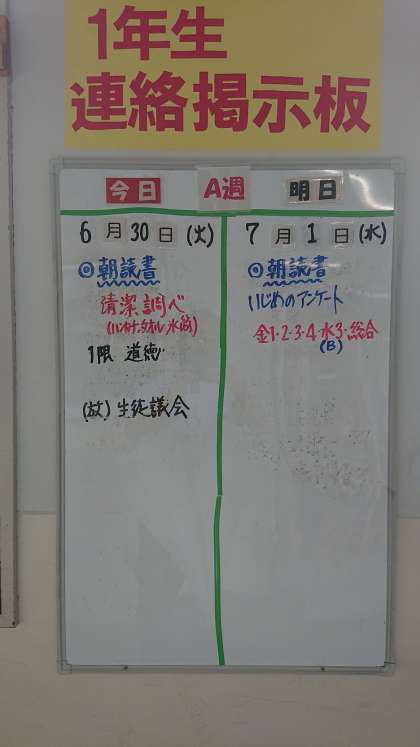 1年生
連絡掲示板
今日 A週 明日
6月30日(火)
◎朝読書
清潔調べ
(ハンカチ、タオル、水筒)
1限 道徳
(放)生徒議会
7月1日(水)
◎朝読書
いじめのアンケート
金1・2・3・4・水3・総合
(B)